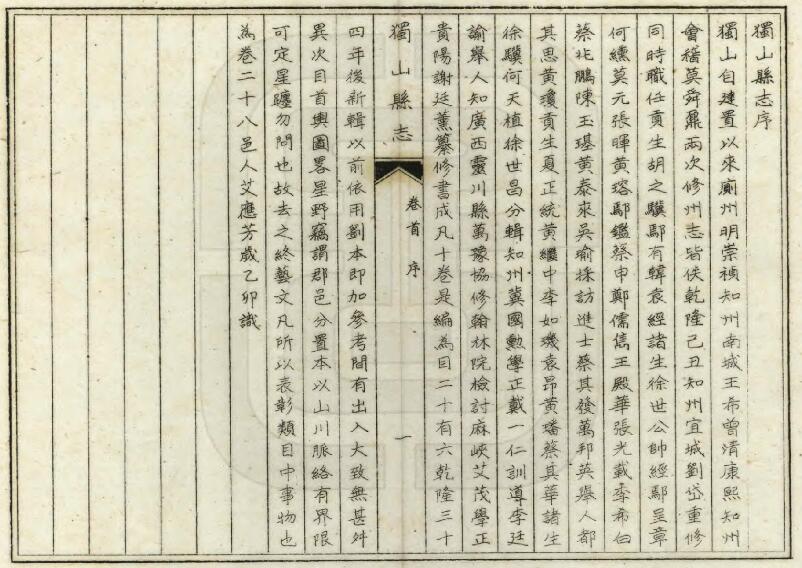 獨山縣志序
獨山自建置以來廟州明崇禎知州南城王希曾清康熙知州
會稽莫舜鼐兩次修州志皆佚乾隆己丑知州宜城劉岱重修
同時職任貢生胡之驥鄢有韓袁經諸生徐世公帥經鄢呈章
何纁莫元張暉黃瑢鄢鑑蔡申鄭儒信王殿華張光載季希白
蔡兆鵬陳玉璂黃泰來吳瑜採訪進士蔡其發萬邦英舉人都
其思黃瓊貢生夏正統黃繼中李如璣袁昂黃璠蔡其華諸生
徐驥何天植徐世昌分輯知州冀國勳學正戴一仁訓導李廷
諭舉人知廣西靈川縣萬豫協修翰林院檢討麻峽艾茂學正
貴陽謝廷薰纂修書成凡十卷是編為目二十有六乾隆三十
獨山縣志
卷首 序
一
四年後新輯以前依用劉本即加參考間有出入大致無甚舛
異次目首輿圖畧星野竊謂郡邑分置本以山川脈絡有界限
可定星躔勿問也故去之終藝文凡所以表彰類目中事物也
為卷二十八邑人艾應芳歲乙卯識